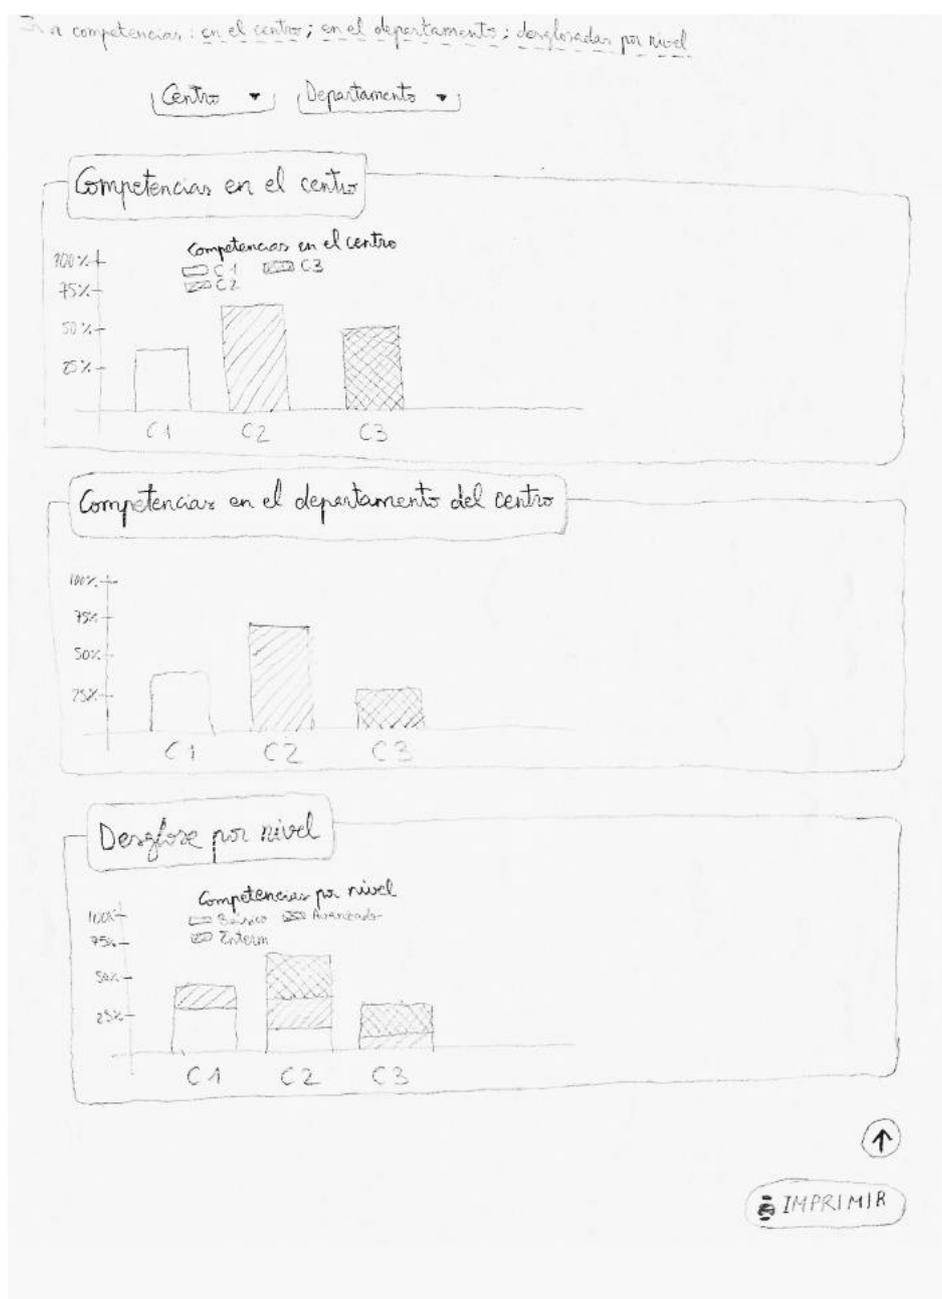 Ir a competencias: en el centro; en el departamento; desglosadas por nivel
Centro ▾ Departamento ▾
Competencias en el centro
Competencias en el centro
C1 C3
C2
100%
75%
50%
25%
C1 C2 C3
Competencias en el departamento del centro
100%
75%
50%
25%
C1 C2 C3
Desglose por nivel
Competencias por nivel
Básico Avanzado
Interm
100%
75%
50%
25%
C1 C2 C3
IMPRIMIR